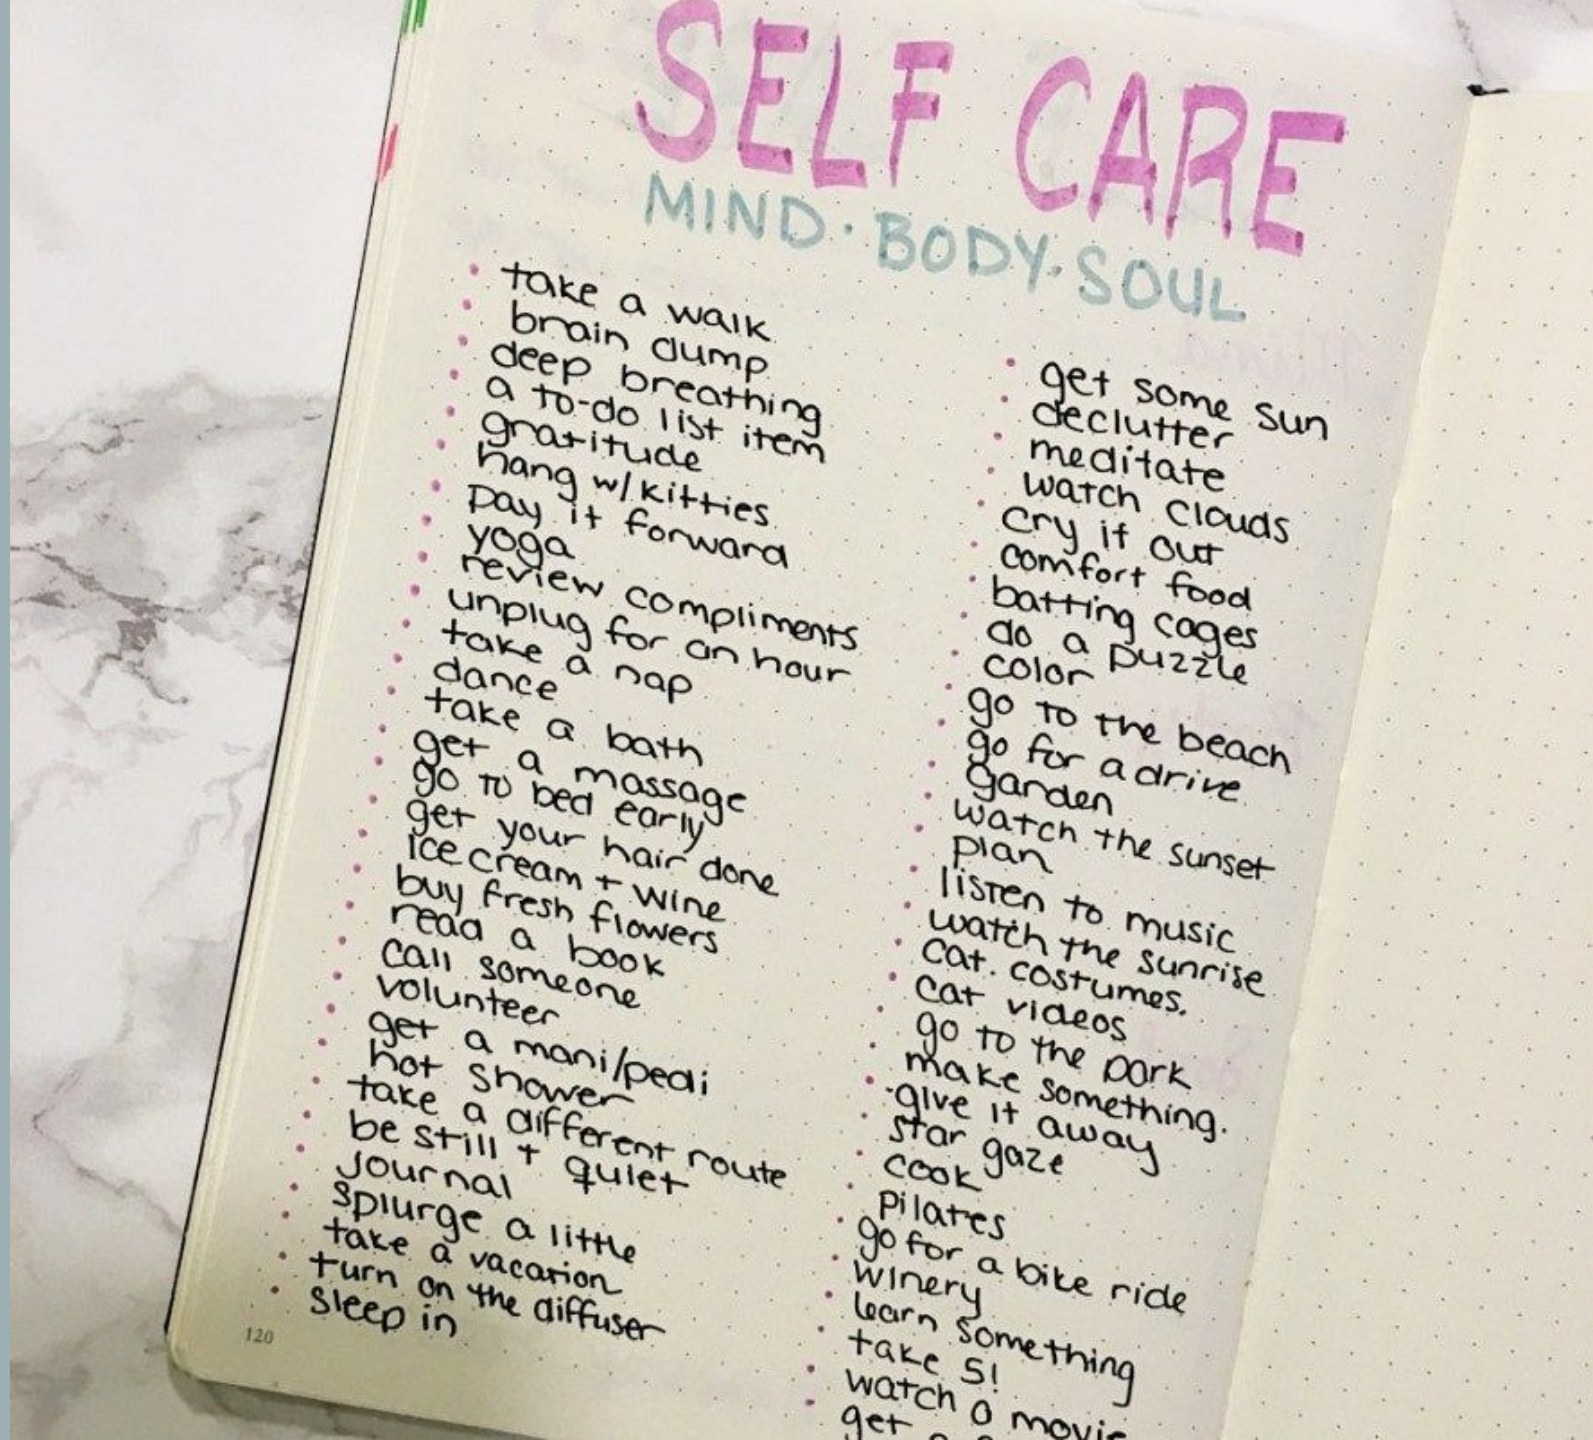 SELF CARE
MIND · BODY · SOUL
• take a walk
• brain dump
• deep breathing
• a to-do list item
• gratitude
• hang w/ kitties
• pay it forward
• yoga
• review compliments
• unplug for an hour
• take a nap
• dance
• take a bath
• get a massage
• go to bed early
• get your hair done
• ice cream + wine
• buy fresh flowers
• read a book
• call someone
• volunteer
• get a mani/pedi
• hot shower
• take a different route
• be still + quiet
• journal
• splurge a little
• take a vacation
• turn on the diffuser
• sleep in
120
• get some sun
• declutter
• meditate
• watch clouds
• cry it out
• comfort food
• batting cages
• do a puzzle
• color
• go to the beach
• go for a drive
• garden
• watch the sunset
• plan
• listen to music
• watch the sunrise
• cat. costumes.
• cat videos
• go to the park
• make something.
• give it away
• star gaze
• cook
• pilates
• go for a bike ride
• winery
• learn something
• take 5!
• watch a movie
get